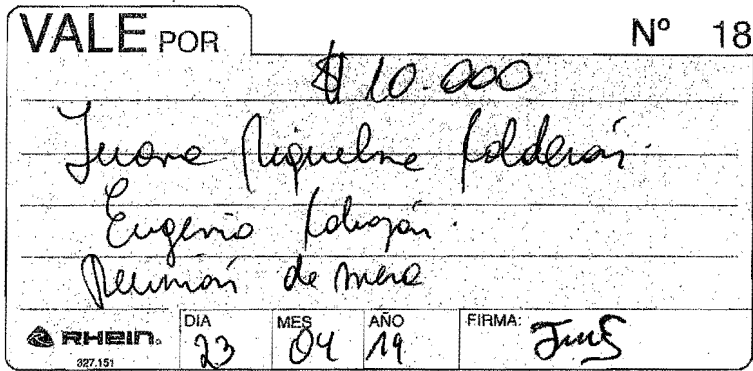 VALE POR Nº 18
$10.000
Juana Riquelme Calderón.
Eugenio
Reunión de mesa
RHEIN. 327.151 DIA 23 MES 04 AÑO 19 FIRMA: